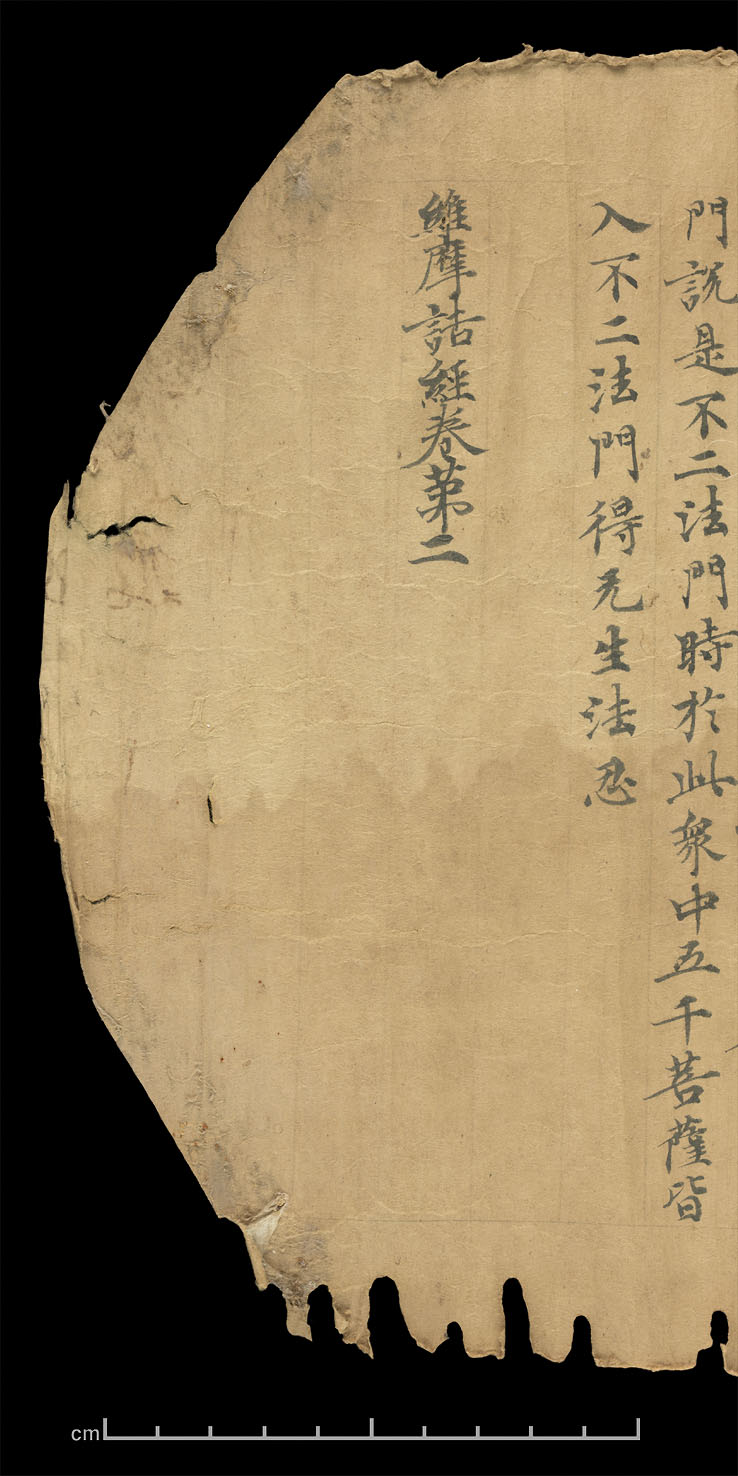 門說是不二法門時於此眾中五千菩薩皆
入不二法門得无生法忍
維摩詰經卷第二
cm